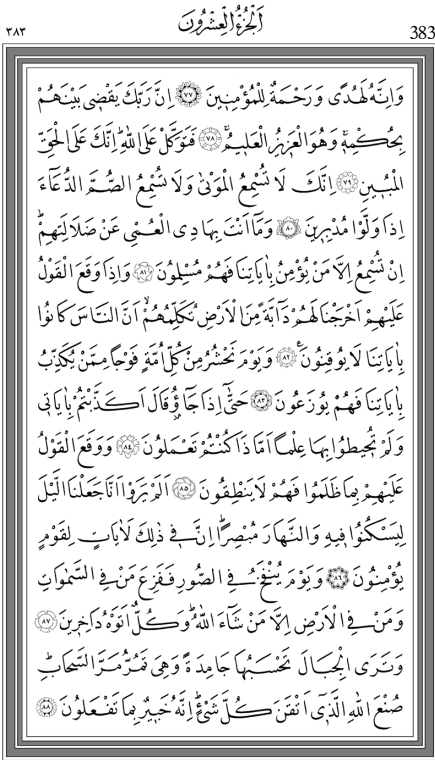 ٣٨٣ اَلْجُزْءُ الْعِشْرُونَ 383
وَاِنَّهُ لَهُدًى وَرَحْمَةٌ لِلْمُؤْمِن۪ينَ ﴿٧٧﴾ اِنَّ رَبَّكَ يَقْض۪ي بَيْنَهُمْ
بِحُكْمِه۪ۚ وَهُوَ الْعَز۪يزُ الْعَل۪يمُۚ ﴿٧٨﴾ فَتَوَكَّلْ عَلَى اللّٰهِۜ اِنَّكَ عَلَى الْحَقِّ
الْمُب۪ينِ ﴿٧٩﴾ اِنَّكَ لَا تُسْمِعُ الْمَوْتٰى وَلَا تُسْمِعُ الصُّمَّ الدُّعَٓاءَ
اِذَا وَلَّوْا مُدْبِر۪ينَ ﴿٨٠﴾ وَمَٓا اَنْتَ بِهَادِي الْعُمْيِ عَنْ ضَلَالَتِهِمْۜ
اِنْ تُسْمِعُ اِلَّا مَنْ يُؤْمِنُ بِاٰيَاتِنَا فَهُمْ مُسْلِمُونَ ﴿٨١﴾ وَاِذَا وَقَعَ الْقَوْلُ
عَلَيْهِمْ اَخْرَجْنَا لَهُمْ دَٓابَّةً مِنَ الْاَرْضِ تُكَلِّمُهُمْۙ اَنَّ النَّاسَ كَانُوا
بِاٰيَاتِنَا لَا يُوقِنُونَ۟ ﴿٨٢﴾ وَيَوْمَ نَحْشُرُ مِنْ كُلِّ اُمَّةٍ فَوْجًا مِمَّنْ يُكَذِّبُ
بِاٰيَاتِنَا فَهُمْ يُوزَعُونَ ﴿٨٣﴾ حَتّٰٓى اِذَا جَٓاؤُ۫ قَالَ اَكَذَّبْتُمْ بِاٰيَات۪ي
وَلَمْ تُح۪يطُوا بِهَا عِلْمًا اَمَّاذَا كُنْتُمْ تَعْمَلُونَ ﴿٨٤﴾ وَوَقَعَ الْقَوْلُ
عَلَيْهِمْ بِمَا ظَلَمُوا فَهُمْ لَا يَنْطِقُونَ ﴿٨٥﴾ اَلَمْ يَرَوْا اَنَّا جَعَلْنَا الَّيْلَ
لِيَسْكُنُوا ف۪يهِ وَالنَّهَارَ مُبْصِرًاۜ اِنَّ ف۪ي ذٰلِكَ لَاٰيَاتٍ لِقَوْمٍ
يُؤْمِنُونَ ﴿٨٦﴾ وَيَوْمَ يُنْفَخُ فِي الصُّورِ فَفَزِعَ مَنْ فِي السَّمٰوَاتِ
وَمَنْ فِي الْاَرْضِ اِلَّا مَنْ شَٓاءَ اللّٰهُۜ وَكُلٌّ اَتَوْهُ دَاخِر۪ينَ ﴿٨٧﴾
وَتَرَى الْجِبَالَ تَحْسَبُهَا جَامِدَةً وَهِيَ تَمُرُّ مَرَّ السَّحَابِۜ
صُنْعَ اللّٰهِ الَّذ۪ٓي اَتْقَنَ كُلَّ شَيْءٍۜ اِنَّهُ خَب۪يرٌ بِمَا تَفْعَلُونَ ﴿٨٨﴾